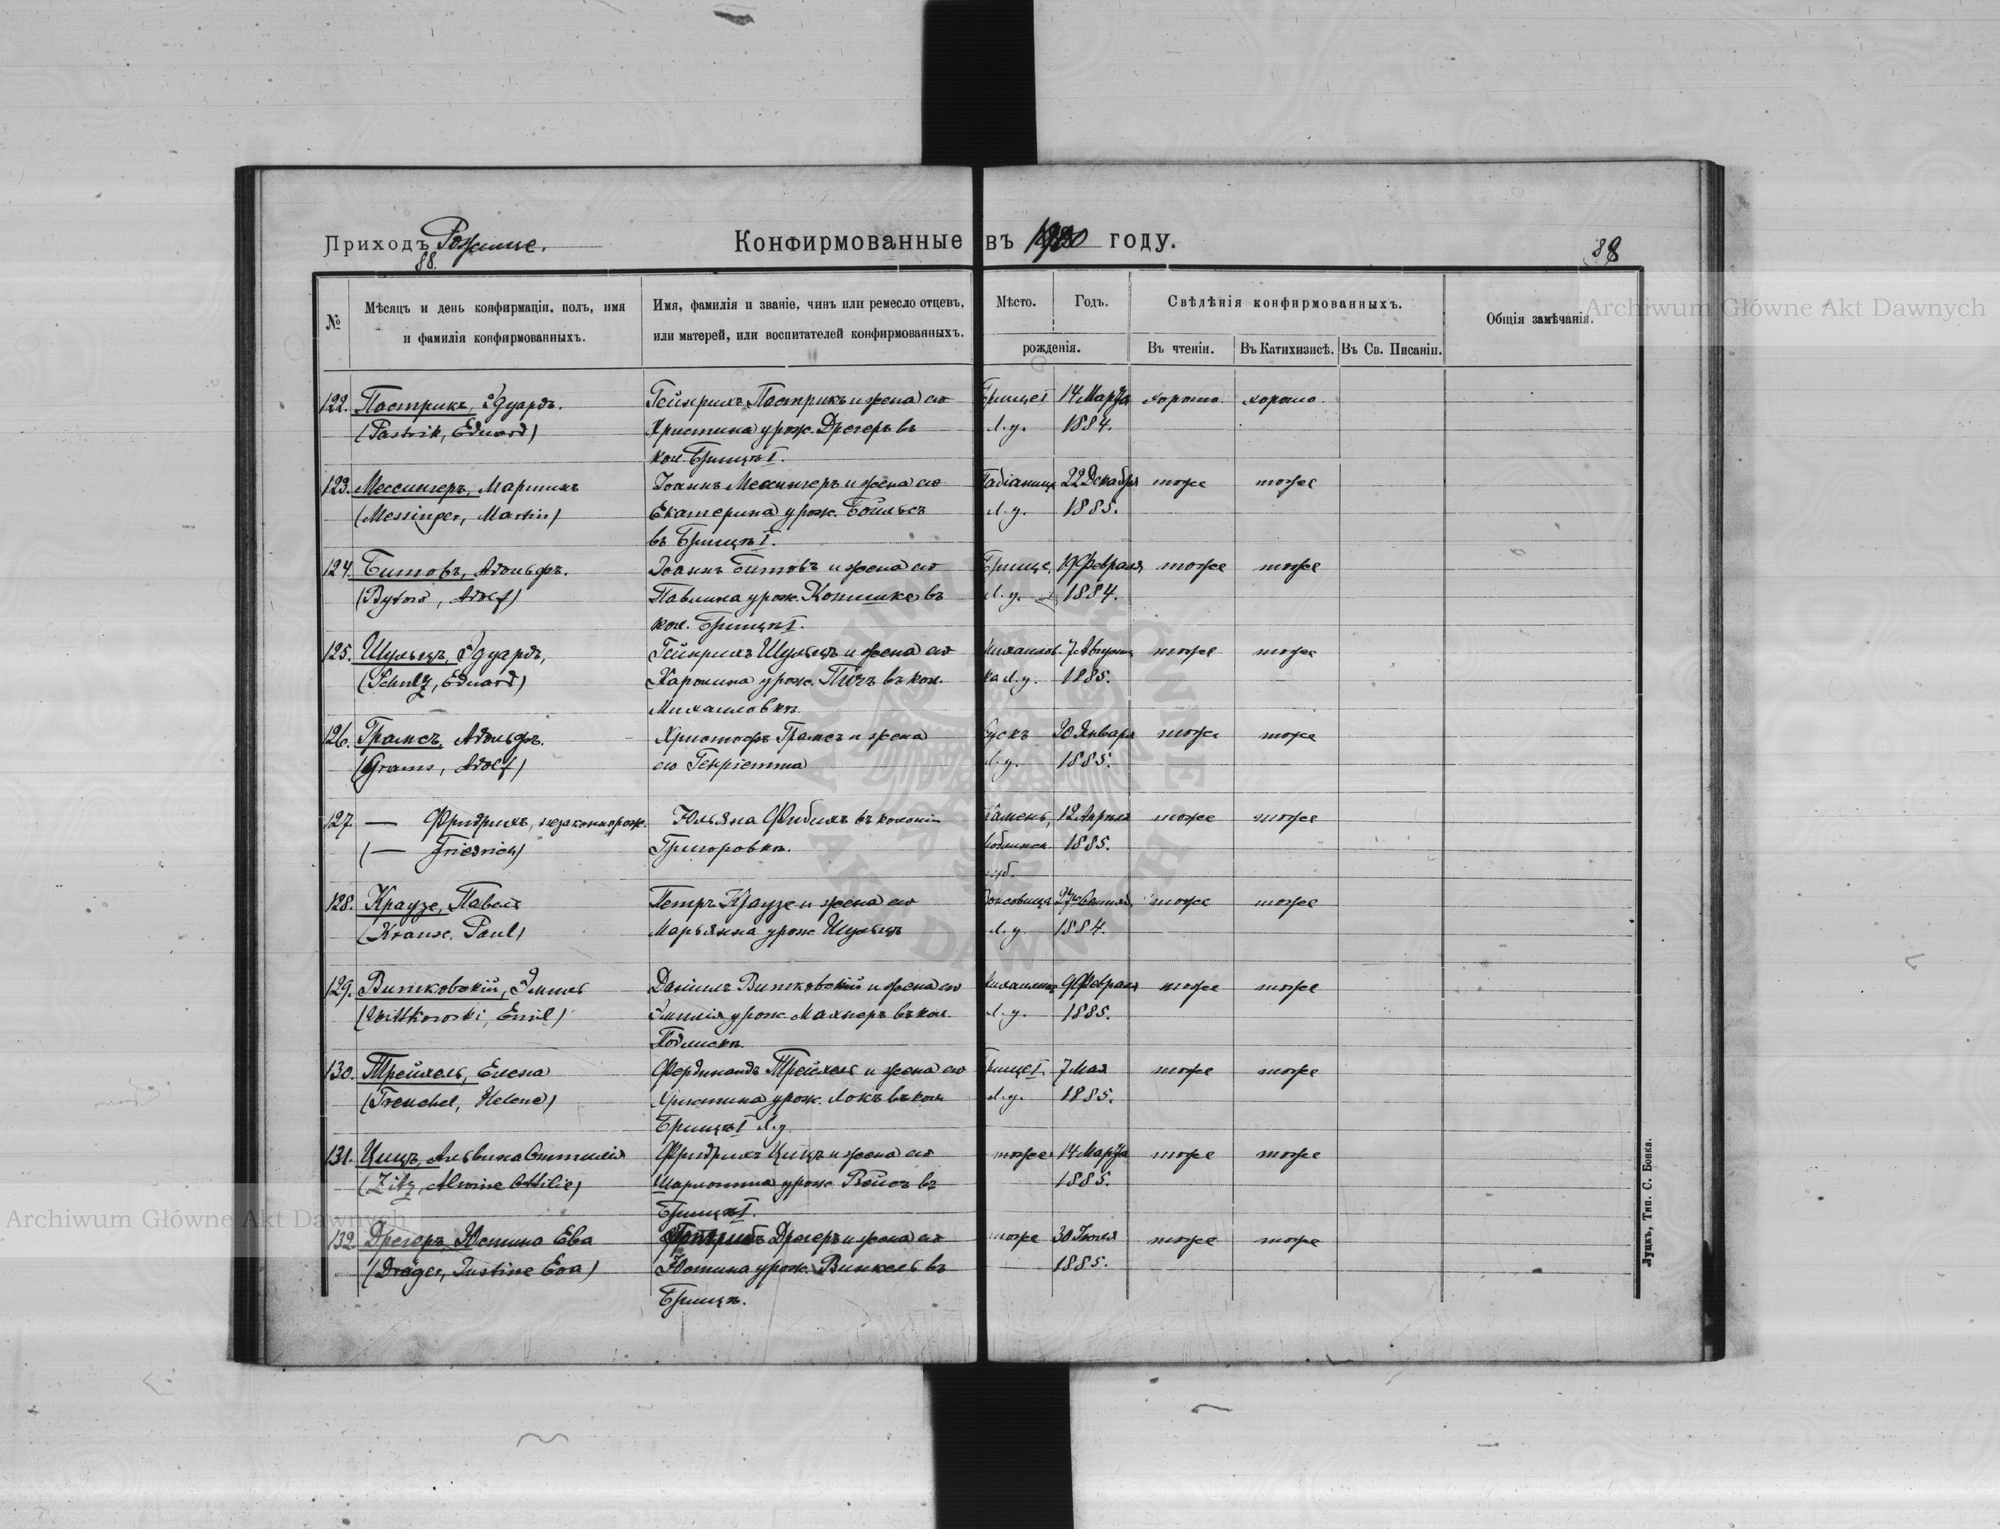 Приходъ Рожище.
88.
Конфирмованные въ 1900 году.
88
№
Мѣсяцъ и день конфирмаціи, полъ, имя
и фамилія конфирмованныхъ.
Имя, фамилія и званіе, чинъ или ремесло отцевъ,
или матерей, или воспитателей конфирмованныхъ.
Мѣсто.
Годъ.
рожденія.
Свѣдѣнія конфирмованныхъ.
Въ чтеніи.
Въ Катихизисѣ.
Въ Св. Писаніи.
Общія замѣчанія.
122. Пастрикъ, Эдуардъ. Гейнрихъ Пастрикъ и жена его Грище I 14 Марта хорошо. хорошо.
(Pastrik, Eduard) Христина урож. Дрегеръ въ Л. у. 1884.
кол. Грищѣ I.
123. Мессингеръ, Мартинъ Іоаннъ Мессингеръ и жена его Пабіаница 22 Декабря тоже тоже
(Messinger, Martin) Екатерина урож. Л. у. 1885.
въ Грищѣ I.
124. Битовъ, Адольфъ. Іоаннъ Битовъ и жена его Грище 19 Февраля тоже тоже
(Bytow, Adolf) Павлина урож. въ Л. у. I 1884.
кол. Грищѣ I.
125. Шульцъ, Эдуардъ, Гейнрихъ Шульцъ и жена его Михаилов- 7 Августа тоже тоже
(Schulz, Eduard) Каролина урож. въ кол. ка Л. у. 1885.
Михаиловкѣ.
126. Грамсъ, Адольфъ. Христофъ Грамсъ и жена 20 Января тоже тоже
(Grams, Adolf) его Генріетта Л. у. 1885.
127. — Фридрихъ, незаконнорож. Юльяна Фибихъ въ колоніи Камень, 12 Апрѣля тоже тоже
(— Friedrich) Григоровкѣ. 1885.
губ.
128. Краузе, Павелъ Петръ Краузе и жена его тоже тоже
(Krause, Paul) Марьянна урож. Шульцъ Л. у. 1884.
129. Витковскій, Эмиль Даніилъ Витковскій и жена его 9 Февраля тоже тоже
(Wittkowski, Emil) Эмилія урож. Махнеръ въ кол. Л. у. 1885.
130. Трейхель, Елена Фердинандъ Трейхель и жена его Грище I 7 Мая тоже тоже
(Treuchel, Helene) Христина урож. Локъ въ кол. Л. у. 1885.
Грищѣ I Л. у.
131. Цицъ, Альвина Оттилія Фридрихъ Цицъ и жена его тоже 14 Марта тоже тоже
(Zitz, Alwine Ottilie) Шарлотта урож. Вейсъ въ 1885.
Грищѣ I.
132. Дрегеръ, Юстина Ева Дрегеръ и жена его тоже 30 Іюля тоже тоже
(Dräger, Justine Eva) Юстина урож. Винкель въ 1885.
Грищѣ.
Луцкъ, Тип. С. Бокка.
Archiwum Główne Akt Dawnych
Archiwum Główne Akt Dawnych
ARCHIWUM GŁÓWNE AKT DAWNYCH